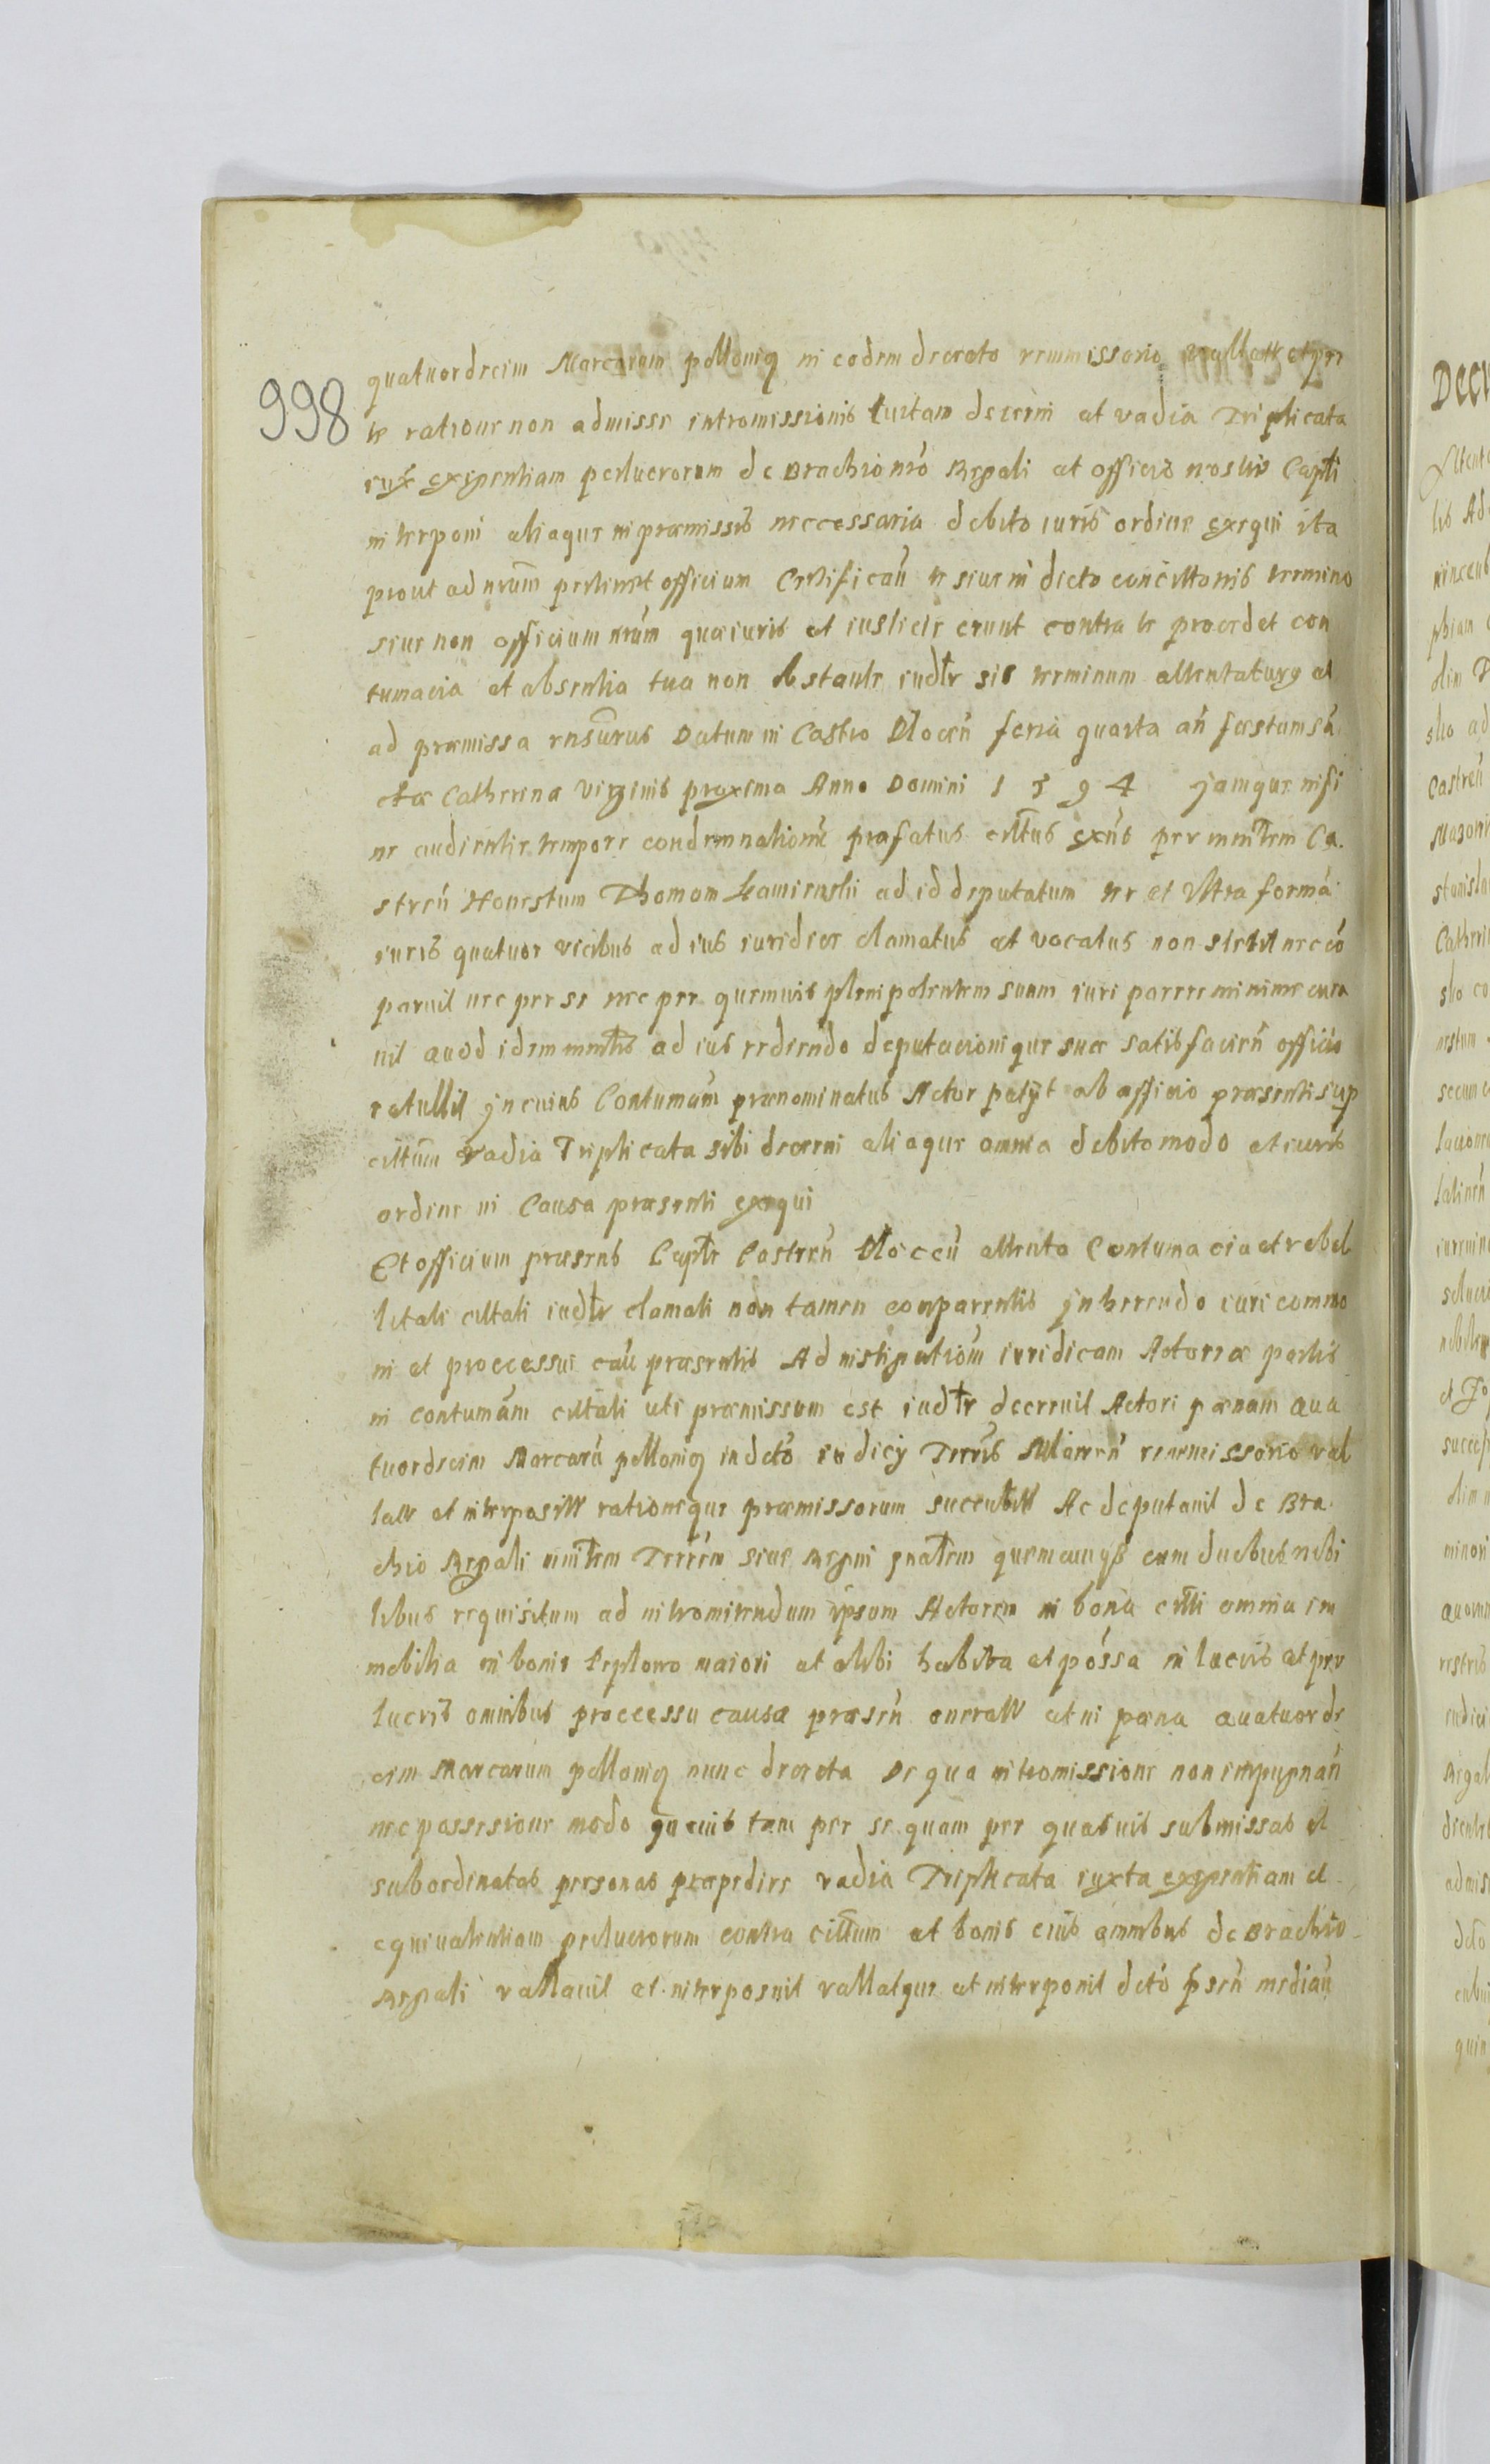 998
quatuordecim Marcarum polloniq in eodem decreto remmissorio vallatt et per
te ratione non admisse intromissionis luitam decerni at vadia Triplicata
iux exigentiam perlucrorum de Brachio nro Regali at officio nostro Capli
interponi aliaque in præmissis neccessaria debito iuris ordine exequi ita
prout ad nrum pertinet officium Certifican te siue in dicto termino
siue non officium nrum quæ iuris et iusticie erunt contra te procedet con
tumacia et absentia tua non obstante iudtr sis terminum attentaturq et
ad præmissa rnsurus Datum in Castro Plocen feria quarta an fæstum sa
ctæ Catherinæ Virginis proxima Anno Domini 1594 Jamque in fi
ne audientie tempore condemnationu præfatus cittus exns per mnltrem Ca
stren Honestum Thomam Kamienski ad id deputatum ter et Vltra forma
iuris quatuor vicibus ad ius iuridice clamatus at vocatus non stetit nec co
paruit nec per se nec per quemuis plenipotentem suum iuri parere minime cura
uit Quod idem mnltris ad ius rediendo deputacionique suæ satisfacien officio
retullit Jn cuius Contumam prænominatus Actor petijt ab officio præsenti sup
cittum vadia Triplicata sibi decerni aliaque omnia debito modo et iuris
ordine in Causa præsenti exequi
Et officium præsens Captr Castren Plocen attenta Contumacia et rebel
litate cittati iudtr clamati non tamen comparentis Jnherendo iuri commo
ni et proccessui cau præsentis Ad instigationem iuridicam Actoreæ partis
in contumam cittati uti præmissum est iudtr decreuit Actori pænam Qua
tuordecim Marcaru polloniq in dcto iudicij Terris Mlauen remmissorio val
latt et interpositt rationeque præmissorum succubitt Ac deputauit de Bra
chio Regali mnltrem Terrem siue Regni gnatem quemcunqß cum duobus nobi
libus requisitum ad intromittendum ipsum Actorem in bona citti omnia im
mobilia in bonis Leplowo maiori at alibi habita et possa in lucris at per
lucris omnibus proccessu causæ præsen oneratt at in pæna Quatuorde
cim Marcarum polloniq nunc decreta De qua intromissione non impugnan
nec possesione modo quouis tam per se quam per quasuis submissas et
subordinatas personas præpedire vadia Triplicata iuxta exigentiam et
equiualentiam perlucrorum contra cittum at bonis eius omnibus de Brachio
Regali vallauit at interposuit vallatque at interponit dcto psen median